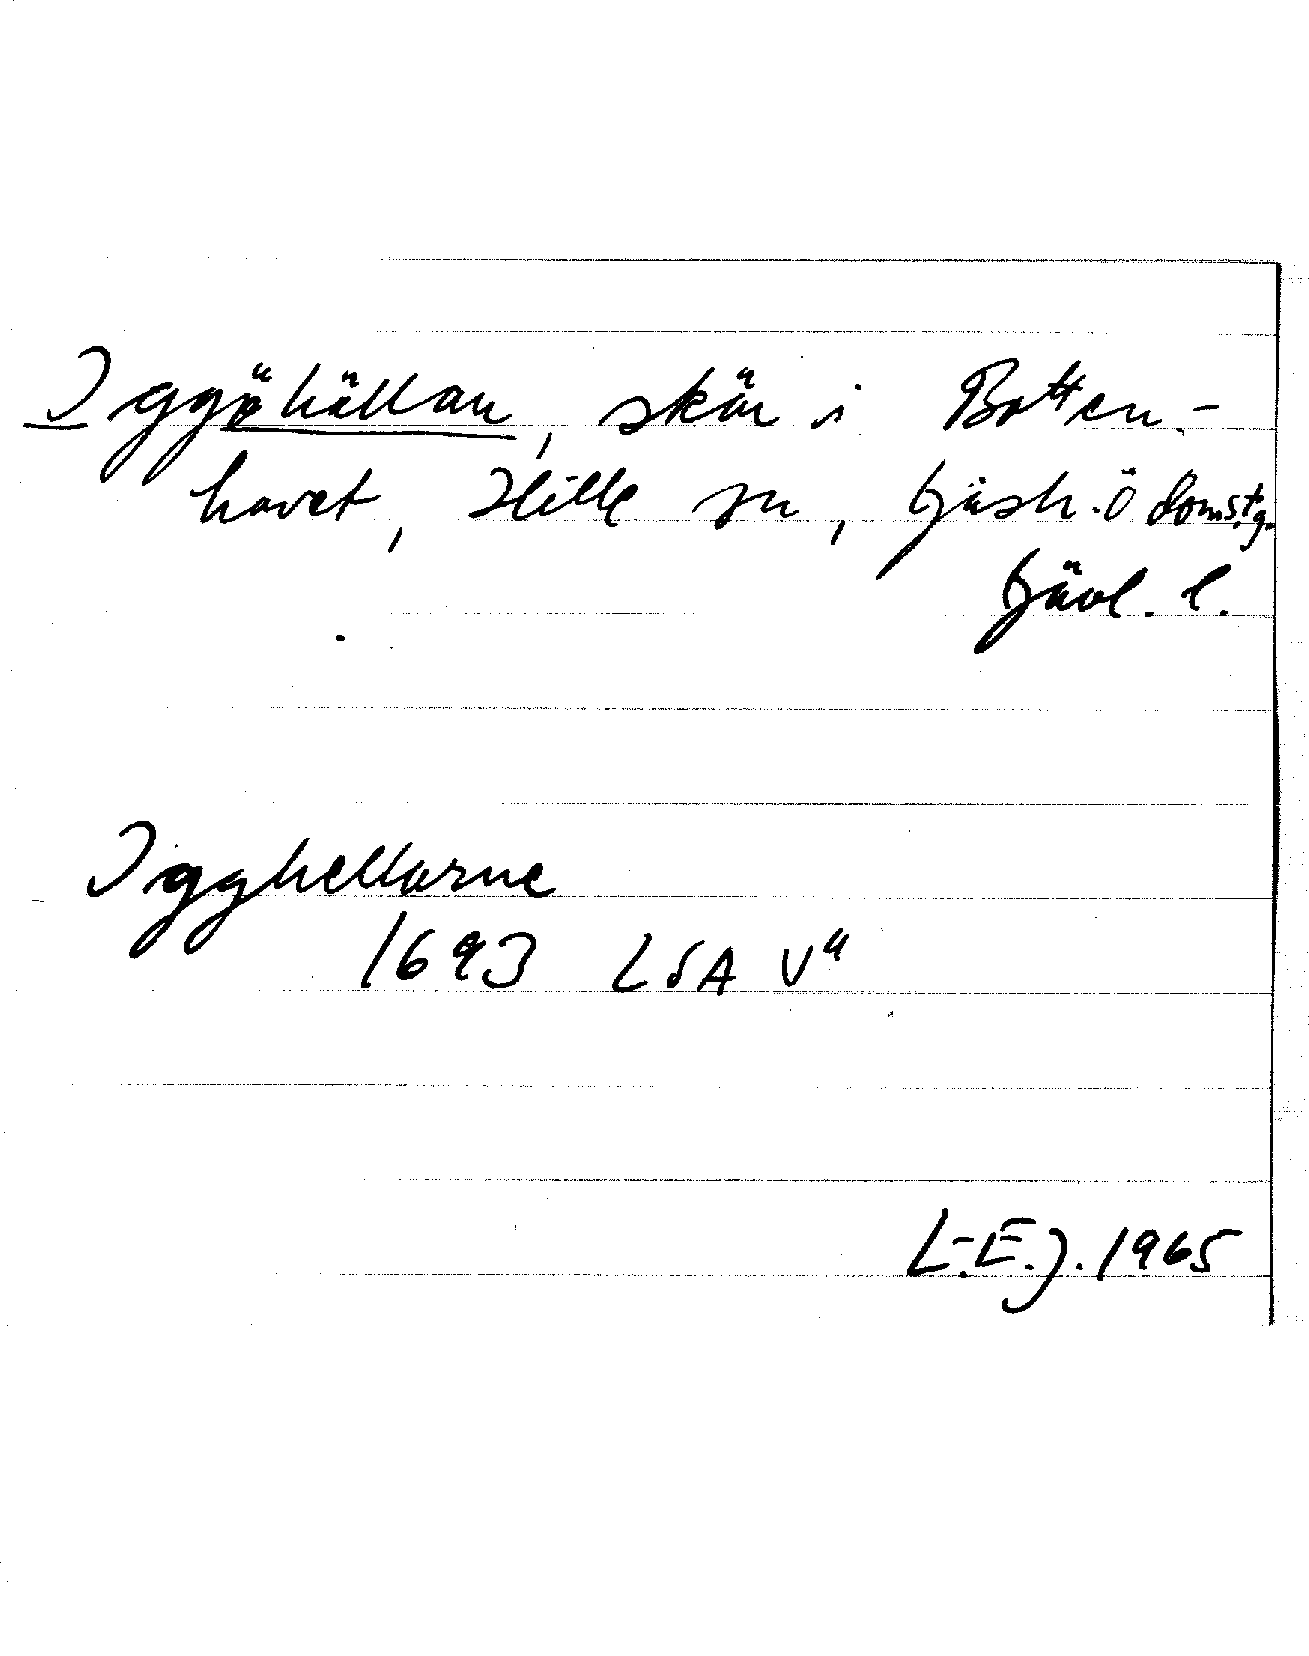 Iggöhällan, skär i Botten-
havet, Hille sn, Gästr. Ö domst.g.
Gävl. l.
Igghellarne
1693 LSA V 4
L-E.J. 1965